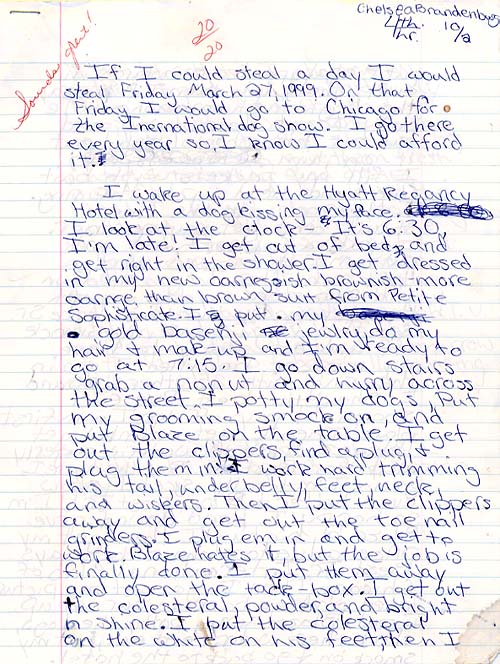 Chelsea Brandenburg
4th. 10/2
hr.
20
20
Sounds great!
If I could steal a day I would
steal Friday March 27, 1999. On that
Friday I would go to Chicago for
the Inernational dog show. I go there
every year so, I know I could afford
it.
I wake up at the Hyatt Regancy
Hotel with a dog kissing my face.
I look at the clock- It's 6:30,
I'm late! I get out of bed, and
get right in the shower. I get dressed
in my new oarnegish brownish-more
oarnge than brown suit from Petite
Sophisticate. I put my
gold basenji jewlry, do my
hair & make-up and I'm ready to
go at 7:15. I go down stairs
grab a donut and hurry across
the street. I potty my dogs, put
my grooming smock on, and
put Blaze on the table. I get
out the clippers, find a plug, &
plug them in. I work hard trimming
his tail, underbelly, feet, neck,
and wiskers. Then I put the clippers
away and get out the toe nail
grinders. I plug em in and get to
work. Blaze hates it, but the job is
finally done. I put them away
and open the tack-box. I get out
the colesteral, powder, and bright
n shine. I put the colesteral
on the white on his feet, then I